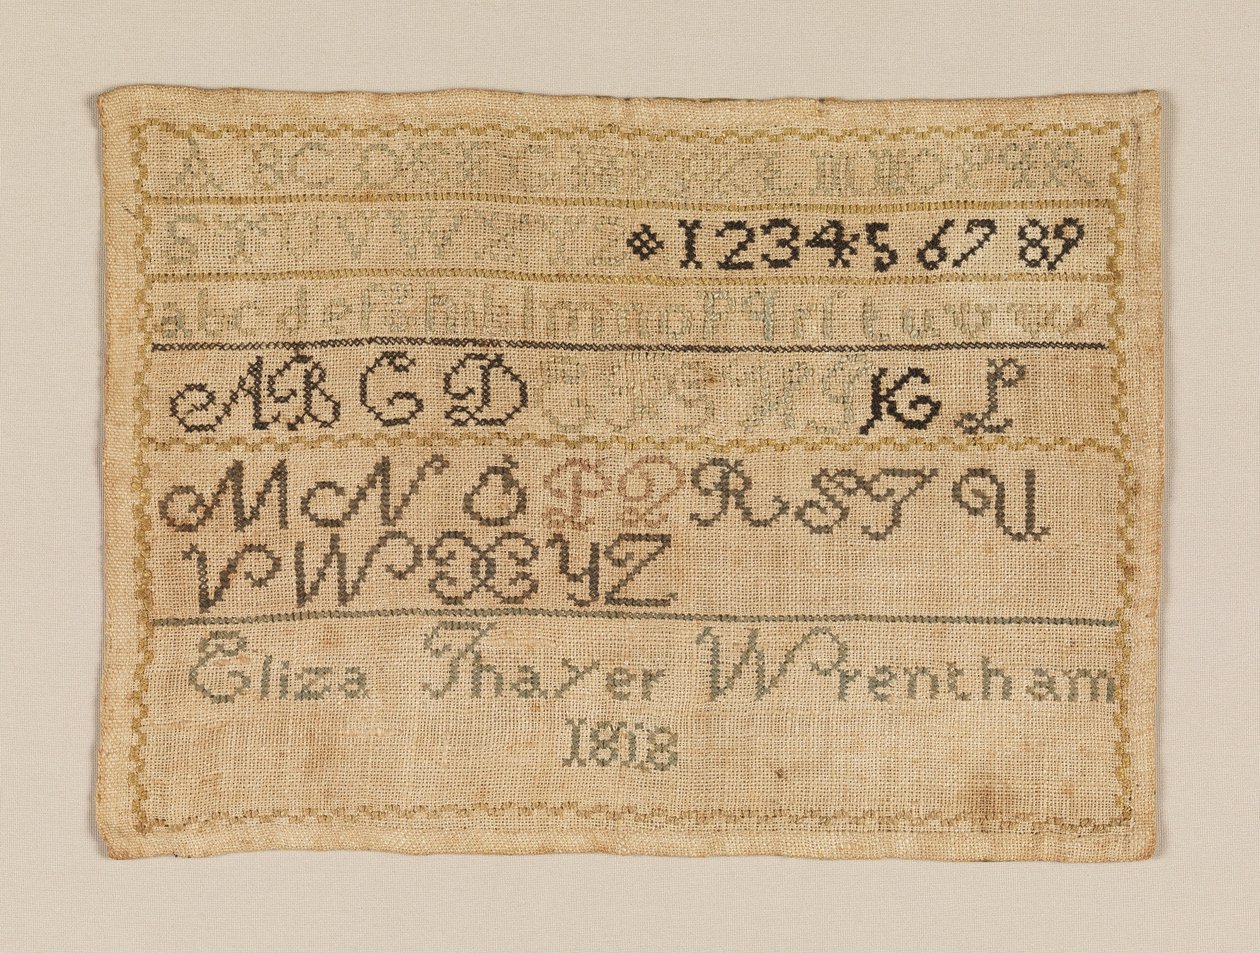 A B C D E F G H I J K L M N O P Q R
S T U V W X Y Z 1 2 3 4 5 6 7 8 9
a b c d e f g h i k l m n o p q r ſ t u v w x
A B C D E F G H I J K L
M N O P Q R S T U
V W X Y Z
Eliza Thayer Wrentham
1818